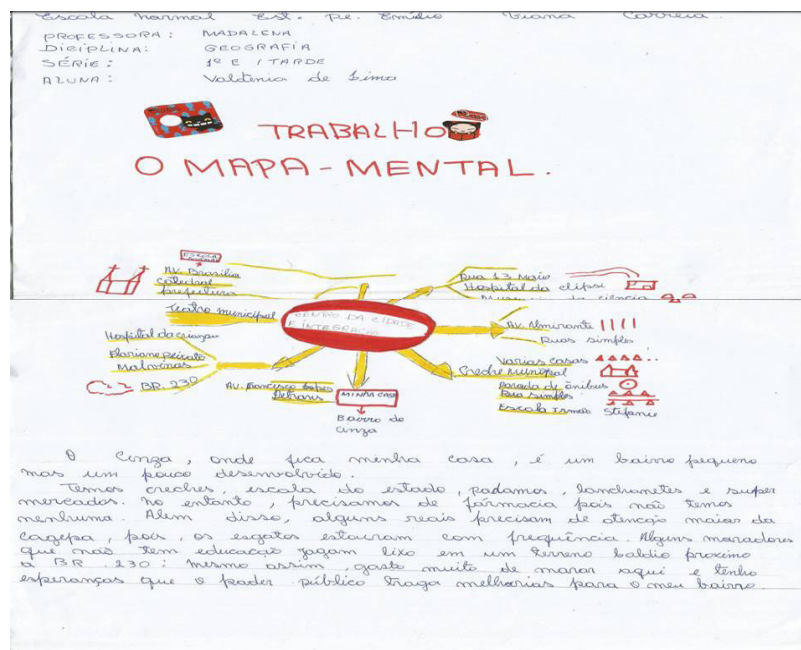 Escola Normal Est. Pe. Emídio Viana Correia.
PROFESSORA: MADALENA
DICIPLINA: GEOGRAFIA
SÉRIE: 1º E / TARDE
ALUNA: Valdenia de Lima
TRABALHO
O MAPA-MENTAL.
ESCOLA
AV. Brasilia
Catedral
prefeitura
Teatro municipal
Hospital da criança
Floriano peixoto
Malvinas
BR. 230
AV. Francisco Lopes
Detrans
CENTRO DA CIDADE
E INTEGRAÇÃO
MINHA CASA
Bairro do
cinza
Rua 13 Maio
Hospital da clipsi
Museu da ciência
AV. Almirante
Ruas simples
Varias casas
Creche municipal
Parada de ônibus
Rua simples
Escola Irmas Stefanie
O Cinza, onde fica minha casa, é um bairro pequeno
mas um pouco desenvolvido.
Temos creches, escola do estado, , lanchonetes e super
mercados. no entanto, precisamos de fármacia pois não temos
nenhuma. Alem disso, alguns reais precisam de atenção maior da
cagepa, pois, os esgotos estouram com frequência. Alguns moradores
que não tem educação jogam lixo em um terreno baldio proximo
a BR. 230: mesmo assim, gosto muito de morar aqui e tenho
esperanças que o poder público traga melhorias para o meu bairro.